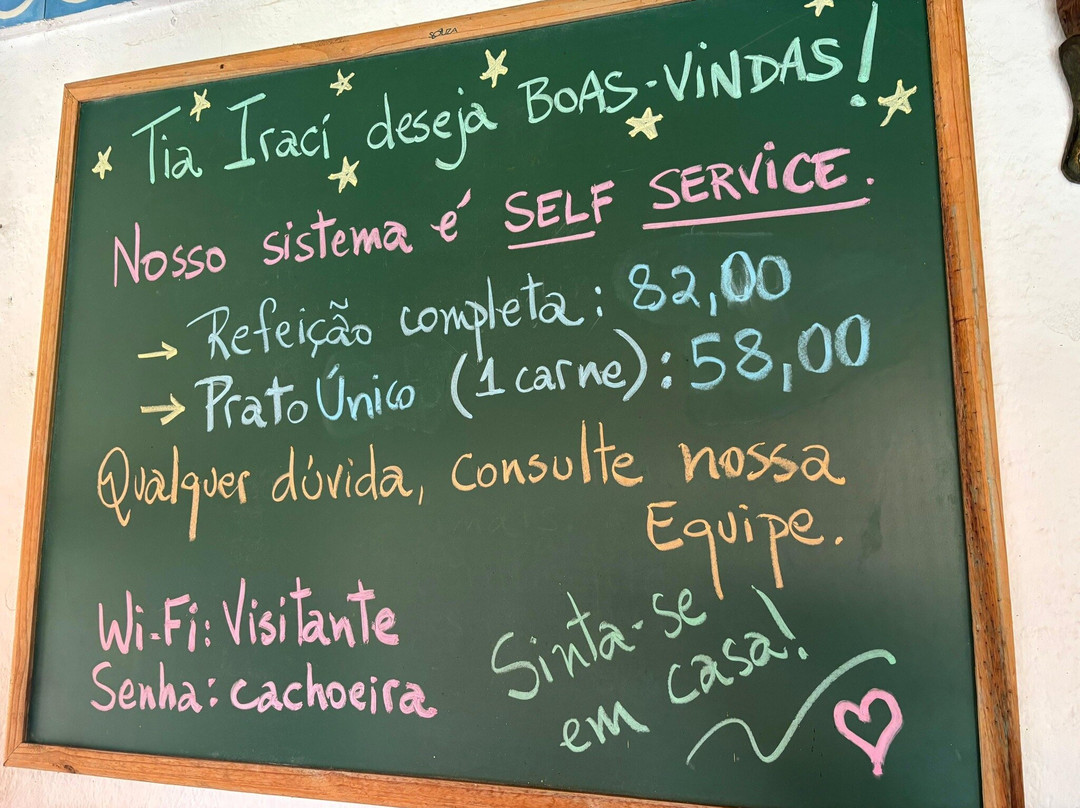 SOUZA
Tia Iraci deseja BOAS-VINDAS!
Nosso sistema é SELF SERVICE.
→ Refeição completa: 82,00
→ Prato Único (1 carne): 58,00
Qualquer dúvida, consulte nossa
Equipe.
Wi-Fi: Visitante
Senha: cachoeira
Sinta-se
em casa!